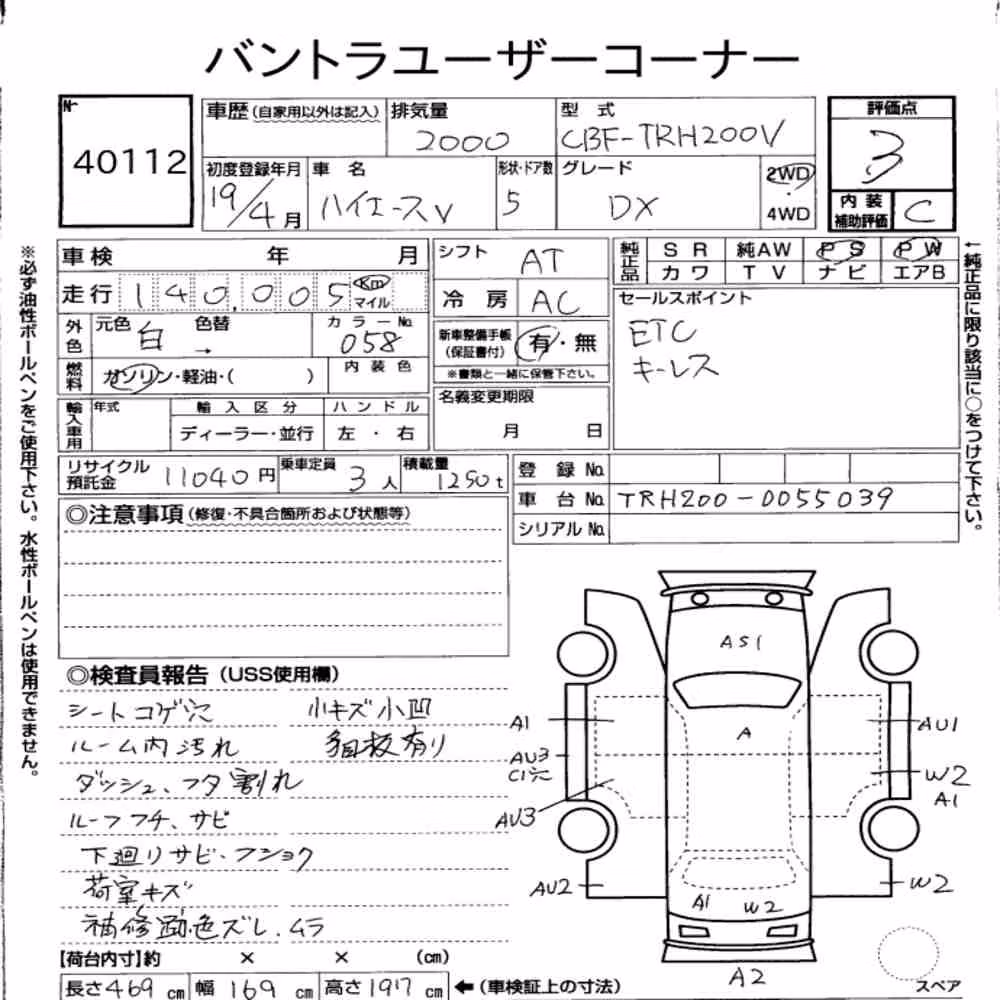 バントラユーザーコーナー
№
40112
車歴(自家用以外は記入)
排気量
2000
型 式
CBF-TRH200V
評価点
3
初度登録年月
19/4月
車 名
ハイエースV
形状・ドア数
5
グレード
DX
2WD
・
4WD
内 装
補助評価
C
※必ず油性ボールペンをご使用下さい。水性ボールペンは使用できません。
車検 年 月
走行 140,005 Km マイル
外色 元色 白 色替 → カラーNo. 058
燃料 ガソリン・軽油・( ) 内 装 色
輸入車用 年式 輸 入 区 分 ハ ン ド ル
ディーラー・並行 左 ・ 右
シフト AT
冷 房 AC
新車整備手帳
(保証書付)
有・無
※書類と一緒に保管下さい。
名義変更期限
月 日
純正品 S R 純AW P S P W
カ ワ T V ナ ビ エアB
セールスポイント
ETC
キーレス
←純正品に限り該当に○をつけて下さい。
リサイクル
預託金
11040円
乗車定員
3人
積載量
1250t
登 録 No.
車 台 No. TRH200-0055039
シリアル No.
◎注意事項(修復・不具合箇所および状態等)
◎検査員報告(USS使用欄)
シートコゲ穴 小キズ小凹
ルーム内汚れ 板有り
ダッシュ、フタ割れ
ルーフフチ、サビ
下廻りサビ・フショク
荷室キズ
補修跡色ズレ.ムラ
AS1
A
A1
AU3
C1穴
AU3
AU2
AU1
W2
A1
W2
A1 W2
A2
スペア
【荷台内寸】約 × × (cm)
長さ469cm 幅169cm 高さ197cm ←(車検証上の寸法)